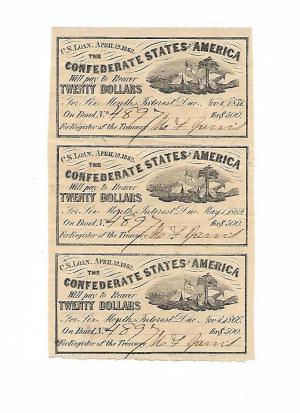 C.S. LOAN, APRIL 12, 1862.
THE
CONFEDERATE STATES OF AMERICA
Will pay to Bearer
TWENTY DOLLARS
For Six Months Interest Due
On Bond No 4897 for $500.
For Register of the Treasury
C.S. LOAN, APRIL 12, 1862.
THE
CONFEDERATE STATES OF AMERICA
Will pay to Bearer
TWENTY DOLLARS
For Six Months Interest Due May 1, 1868.
On Bond No 4897 for $500.
For Register of the Treasury
C.S. LOAN, APRIL 12, 1862.
THE
CONFEDERATE STATES OF AMERICA
Will pay to Bearer
TWENTY DOLLARS
For Six Months Interest Due
On Bond No 4897 for $500.
For Register of the Treasury